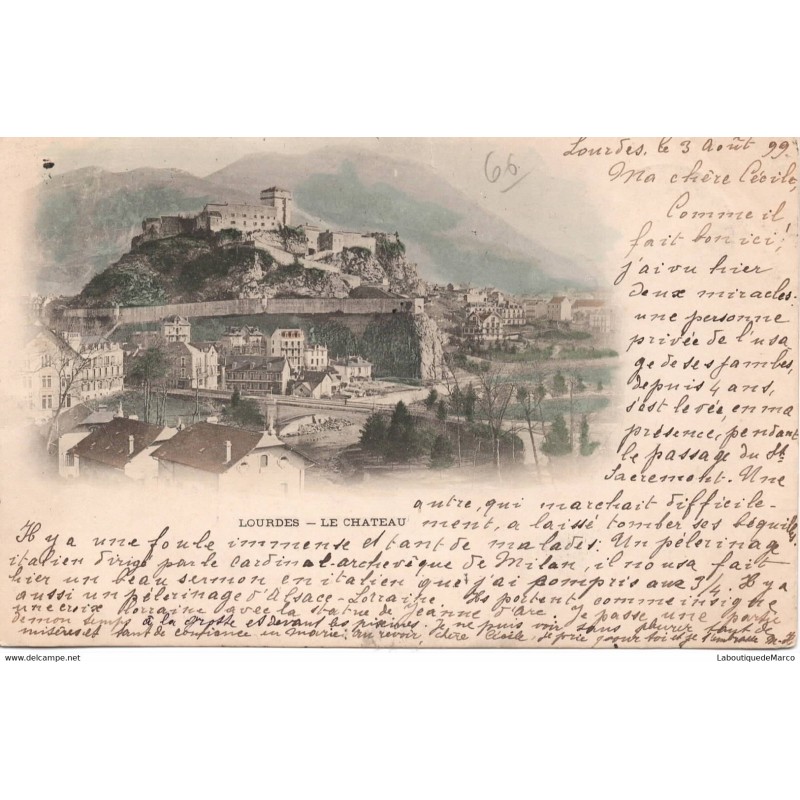 66
Lourdes, le 3 Août 99.
Ma chère Cécile,
Comme il
fait bon ici!
j'ai vu hier
deux miracles:
une personne
privée de l'usa
ge de ses jambes,
depuis 4 ans,
s'est levée, en ma
présence, pendant
le passage du St
Sacrement. Une
autre, qui marchait difficile-
LOURDES – LE CHATEAU
ment, a laissé tomber ses béquilles.
Il y a une foule immense et tant de malades. Un pélerinage
italien dirigé par le cardinal-archevêque de Milan, il nous a fait
hier un beau sermon en italien que j'ai compris aux 3/4. Il y a
aussi un pélerinage d'Alsace-Lorraine. Ils portent comme insigne
une croix lorraine avec la statue de Jeanne d'Arc. Je passe une partie
de mon temps à la grotte et devant les piscines. Je ne puis voir sans pleurer tant de
misères et tant de confiance en Marie. Au revoir, chère Cécile, je prie pour toi et je t'embrasse
www.delcampe.net
LaboutiquedeMarco